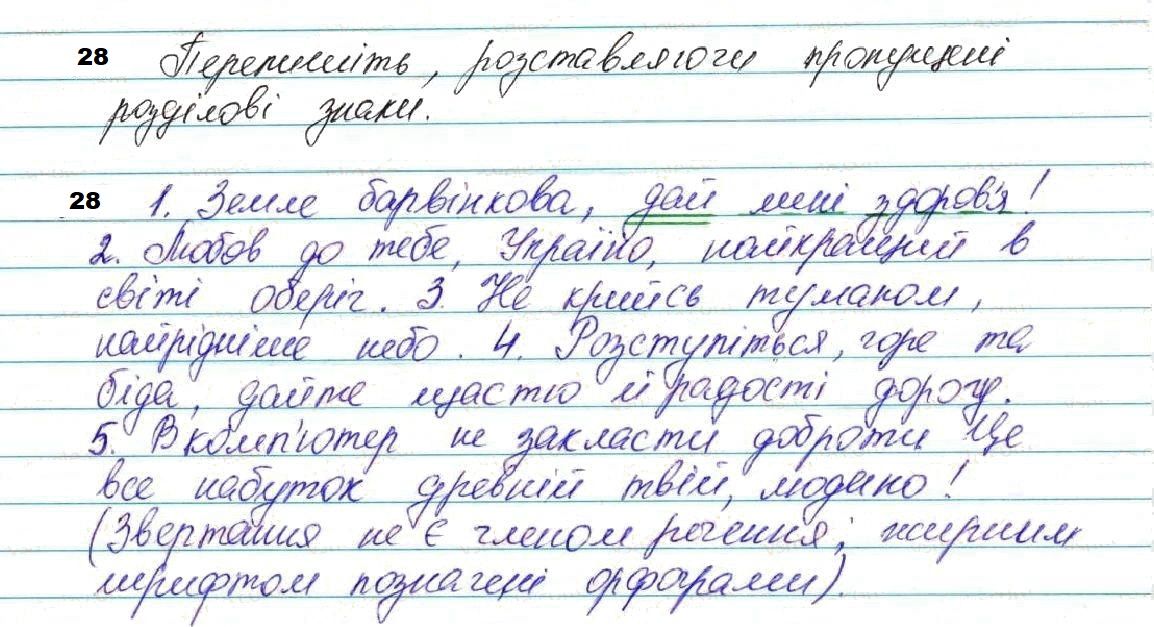 28 Перепишіть, розставляючи пропущені
розділові знаки.
28 1. Земле барвінкова, дай мені здоров'я!
2. Любов до тебе, Україно, найкращий в
світі оберіг. 3. Не крийсь туманом,
найрідніше небо. 4. Розступіться, горе та
біда, дайте щастю й радості дорогу.
5. В комп'ютер не закласти доброти. Це
все набуток древній твій, людино!
(Звертання не є членом речення; жирним
шрифтом позначені орфограми).